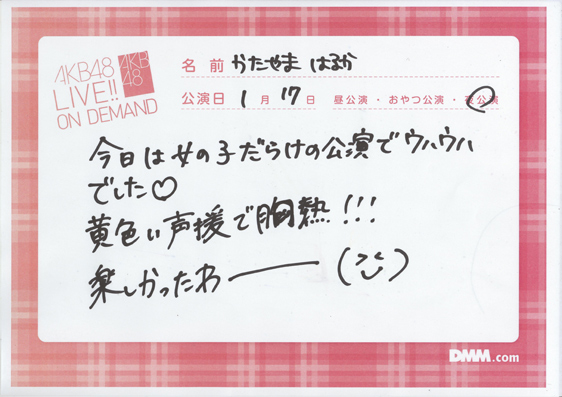 AKB48
LIVE!!
ON DEMAND
AKB
48
名前 かたやま はるか
公演日 1月17日 昼公演・おやつ公演・夜公演
今日は女の子だらけの公演でウハウハ
でした♡
黄色い声援で胸熱!!!
楽しかったわー
DMM.com